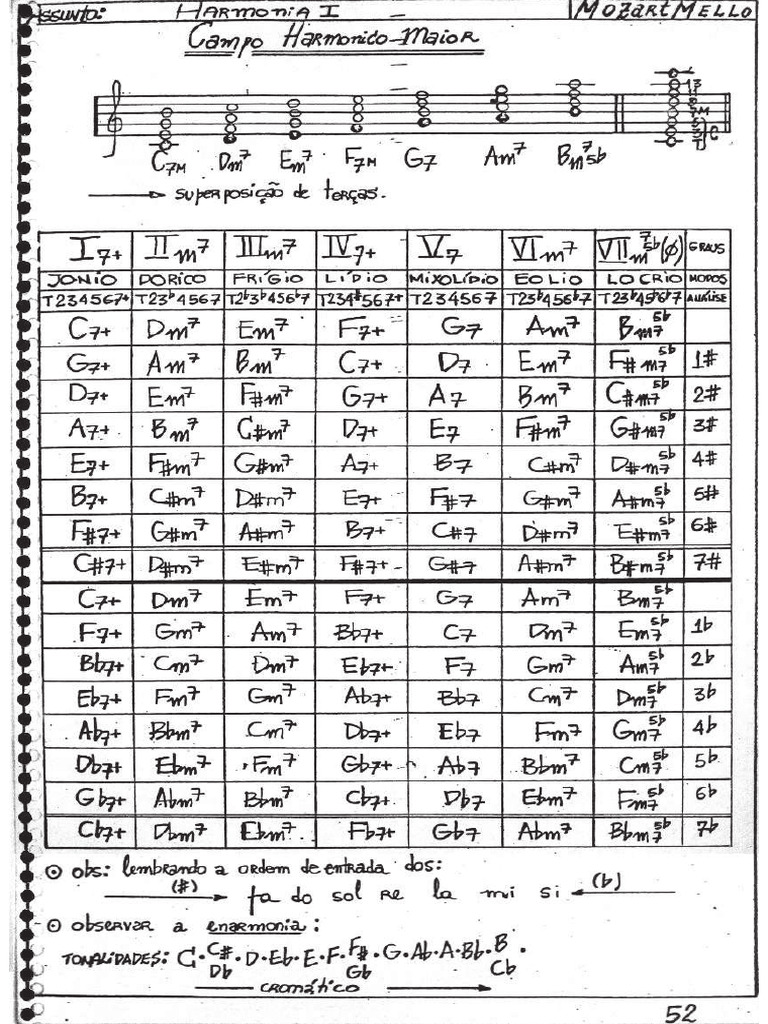 ASSUNTO: HARMONIA I MOZART MELLO
CAMPO HARMONICO-MAIOR
C7M Dm7 Em7 F7M G7 Am7 Bm7 5b
superposição de terças.
I7+ IIm7 IIIm7 IV7+ V7 VIm7 VIIm7 5b(ø) GRAUS
JONIO DORICO FRÍGIO LÍDIO MIXOLÍDIO EOLIO LOCRIO MODOS
T234567+ T23b4567 T2b3b456b7 T234#567+ T234567 T23b456b7 T2b3b45b6b7 ANÁLISE
C7+ Dm7 Em7 F7+ G7 Am7 Bm7 5b
G7+ Am7 Bm7 C7+ D7 Em7 F#m7 5b 1#
D7+ Em7 F#m7 G7+ A7 Bm7 C#m7 5b 2#
A7+ Bm7 C#m7 D7+ E7 F#m7 G#m7 5b 3#
E7+ F#m7 G#m7 A7+ B7 C#m7 D#m7 5b 4#
B7+ C#m7 D#m7 E7+ F#7 G#m7 A#m7 5b 5#
F#7+ G#m7 A#m7 B7+ C#7 D#m7 E#m7 5b 6#
C#7+ D#m7 E#m7 F#7+ G#7 A#m7 B#m7 5b 7#
C7+ Dm7 Em7 F7+ G7 Am7 Bm7 5b
F7+ Gm7 Am7 Bb7+ C7 Dm7 Em7 5b 1b
Bb7+ Cm7 Dm7 Eb7+ F7 Gm7 Am7 5b 2b
Eb7+ Fm7 Gm7 Ab7+ Bb7 Cm7 Dm7 5b 3b
Ab7+ Bbm7 Cm7 Db7+ Eb7 Fm7 Gm7 5b 4b
Db7+ Ebm7 Fm7 Gb7+ Ab7 Bbm7 Cm7 5b 5b
Gb7+ Abm7 Bbm7 Cb7+ Db7 Ebm7 Fm7 5b 6b
Cb7+ Dbm7 Ebm7 Fb7+ Gb7 Abm7 Bbm7 5b 7b
obs: lembrando a ordem de entrada dos:
(#) fa do sol re la mi si (b)
observar a enarmonia:
TONALIDADES: C·C#·D·Eb·E·F·F#·G·Ab·A·Bb·B·
Db Gb Cb
CROMÁTICO
52